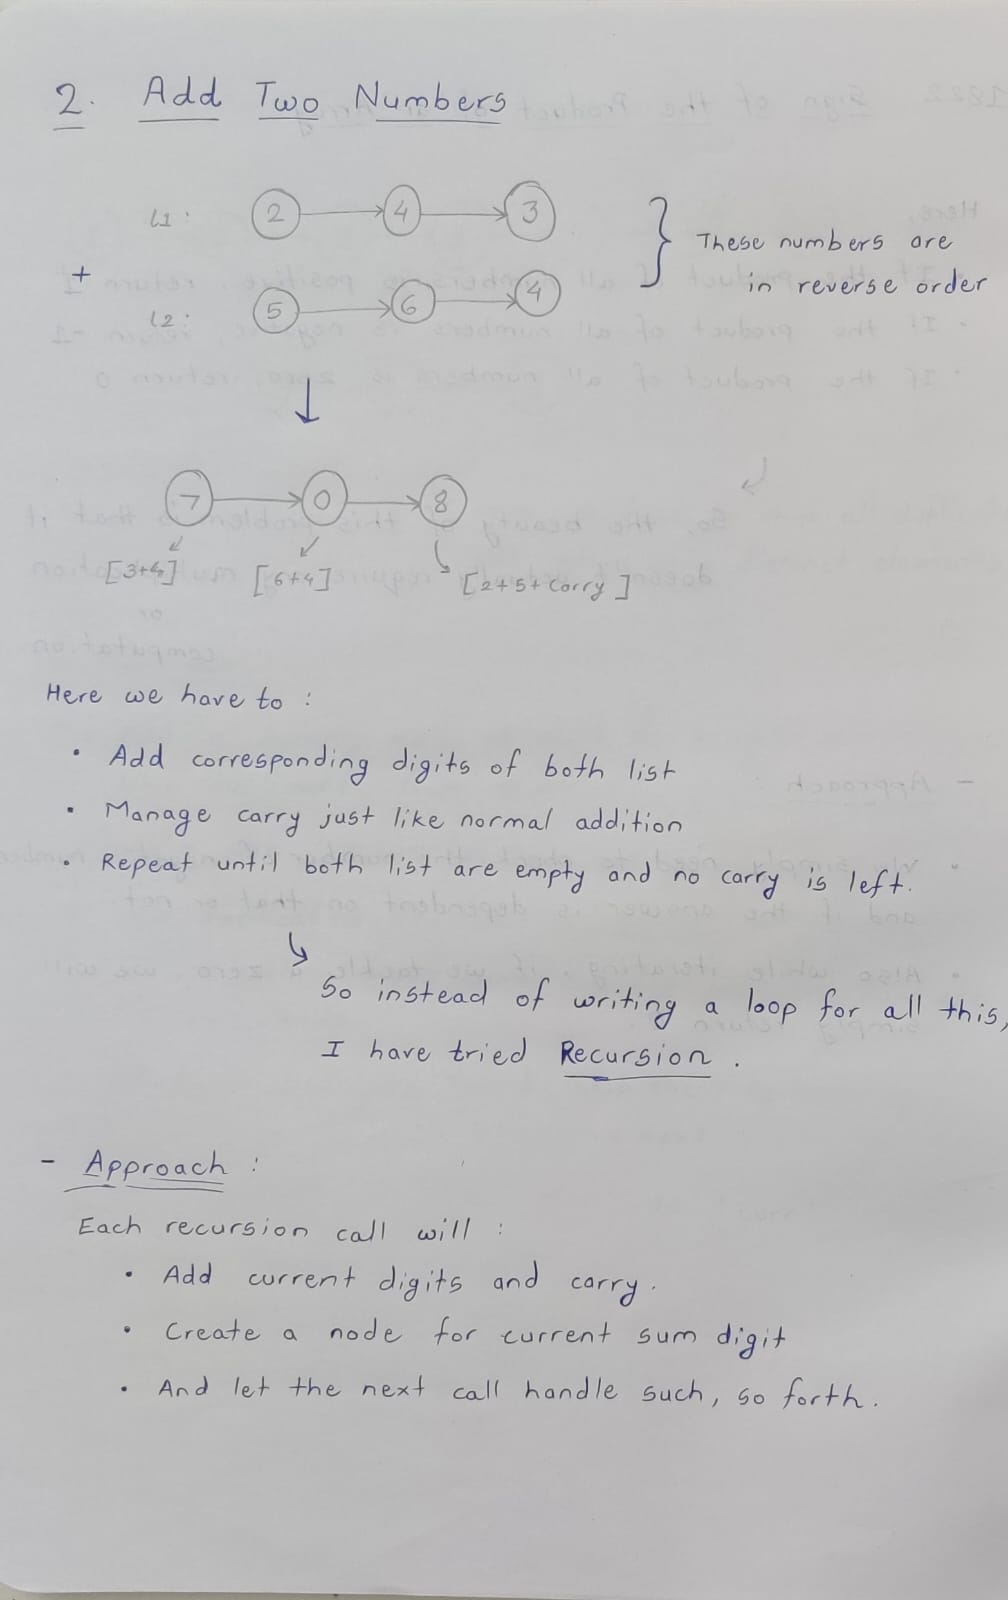 2. Add Two Numbers
l1: 2 4 3
+
These numbers are
in reverse order
l2: 5 6 4
7 0 8
[3+4] [6+4] [2+5+carry]
Here we have to :
• Add corresponding digits of both list
• Manage carry just like normal addition
• Repeat until both list are empty and no carry is left.
So instead of writing a loop for all this,
I have tried Recursion .
- Approach :
Each recursion call will :
• Add current digits and carry.
• Create a node for current sum digit
• And let the next call handle such, so forth.